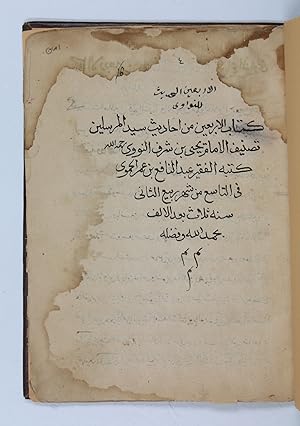 ٤
الاربعين الحديث
للنواوى
كتاب الاربعين من احاديث سيد المرسلين
تصنيف الامام يحيى بن شرف النووى رحمه الله
كتبه الفقير عبد النافع بن عمر الحموى
فى التاسع من شهر ربيع الثانى
سنه ثلاث بعد الالف
بحمد الله وفضله
م م
م